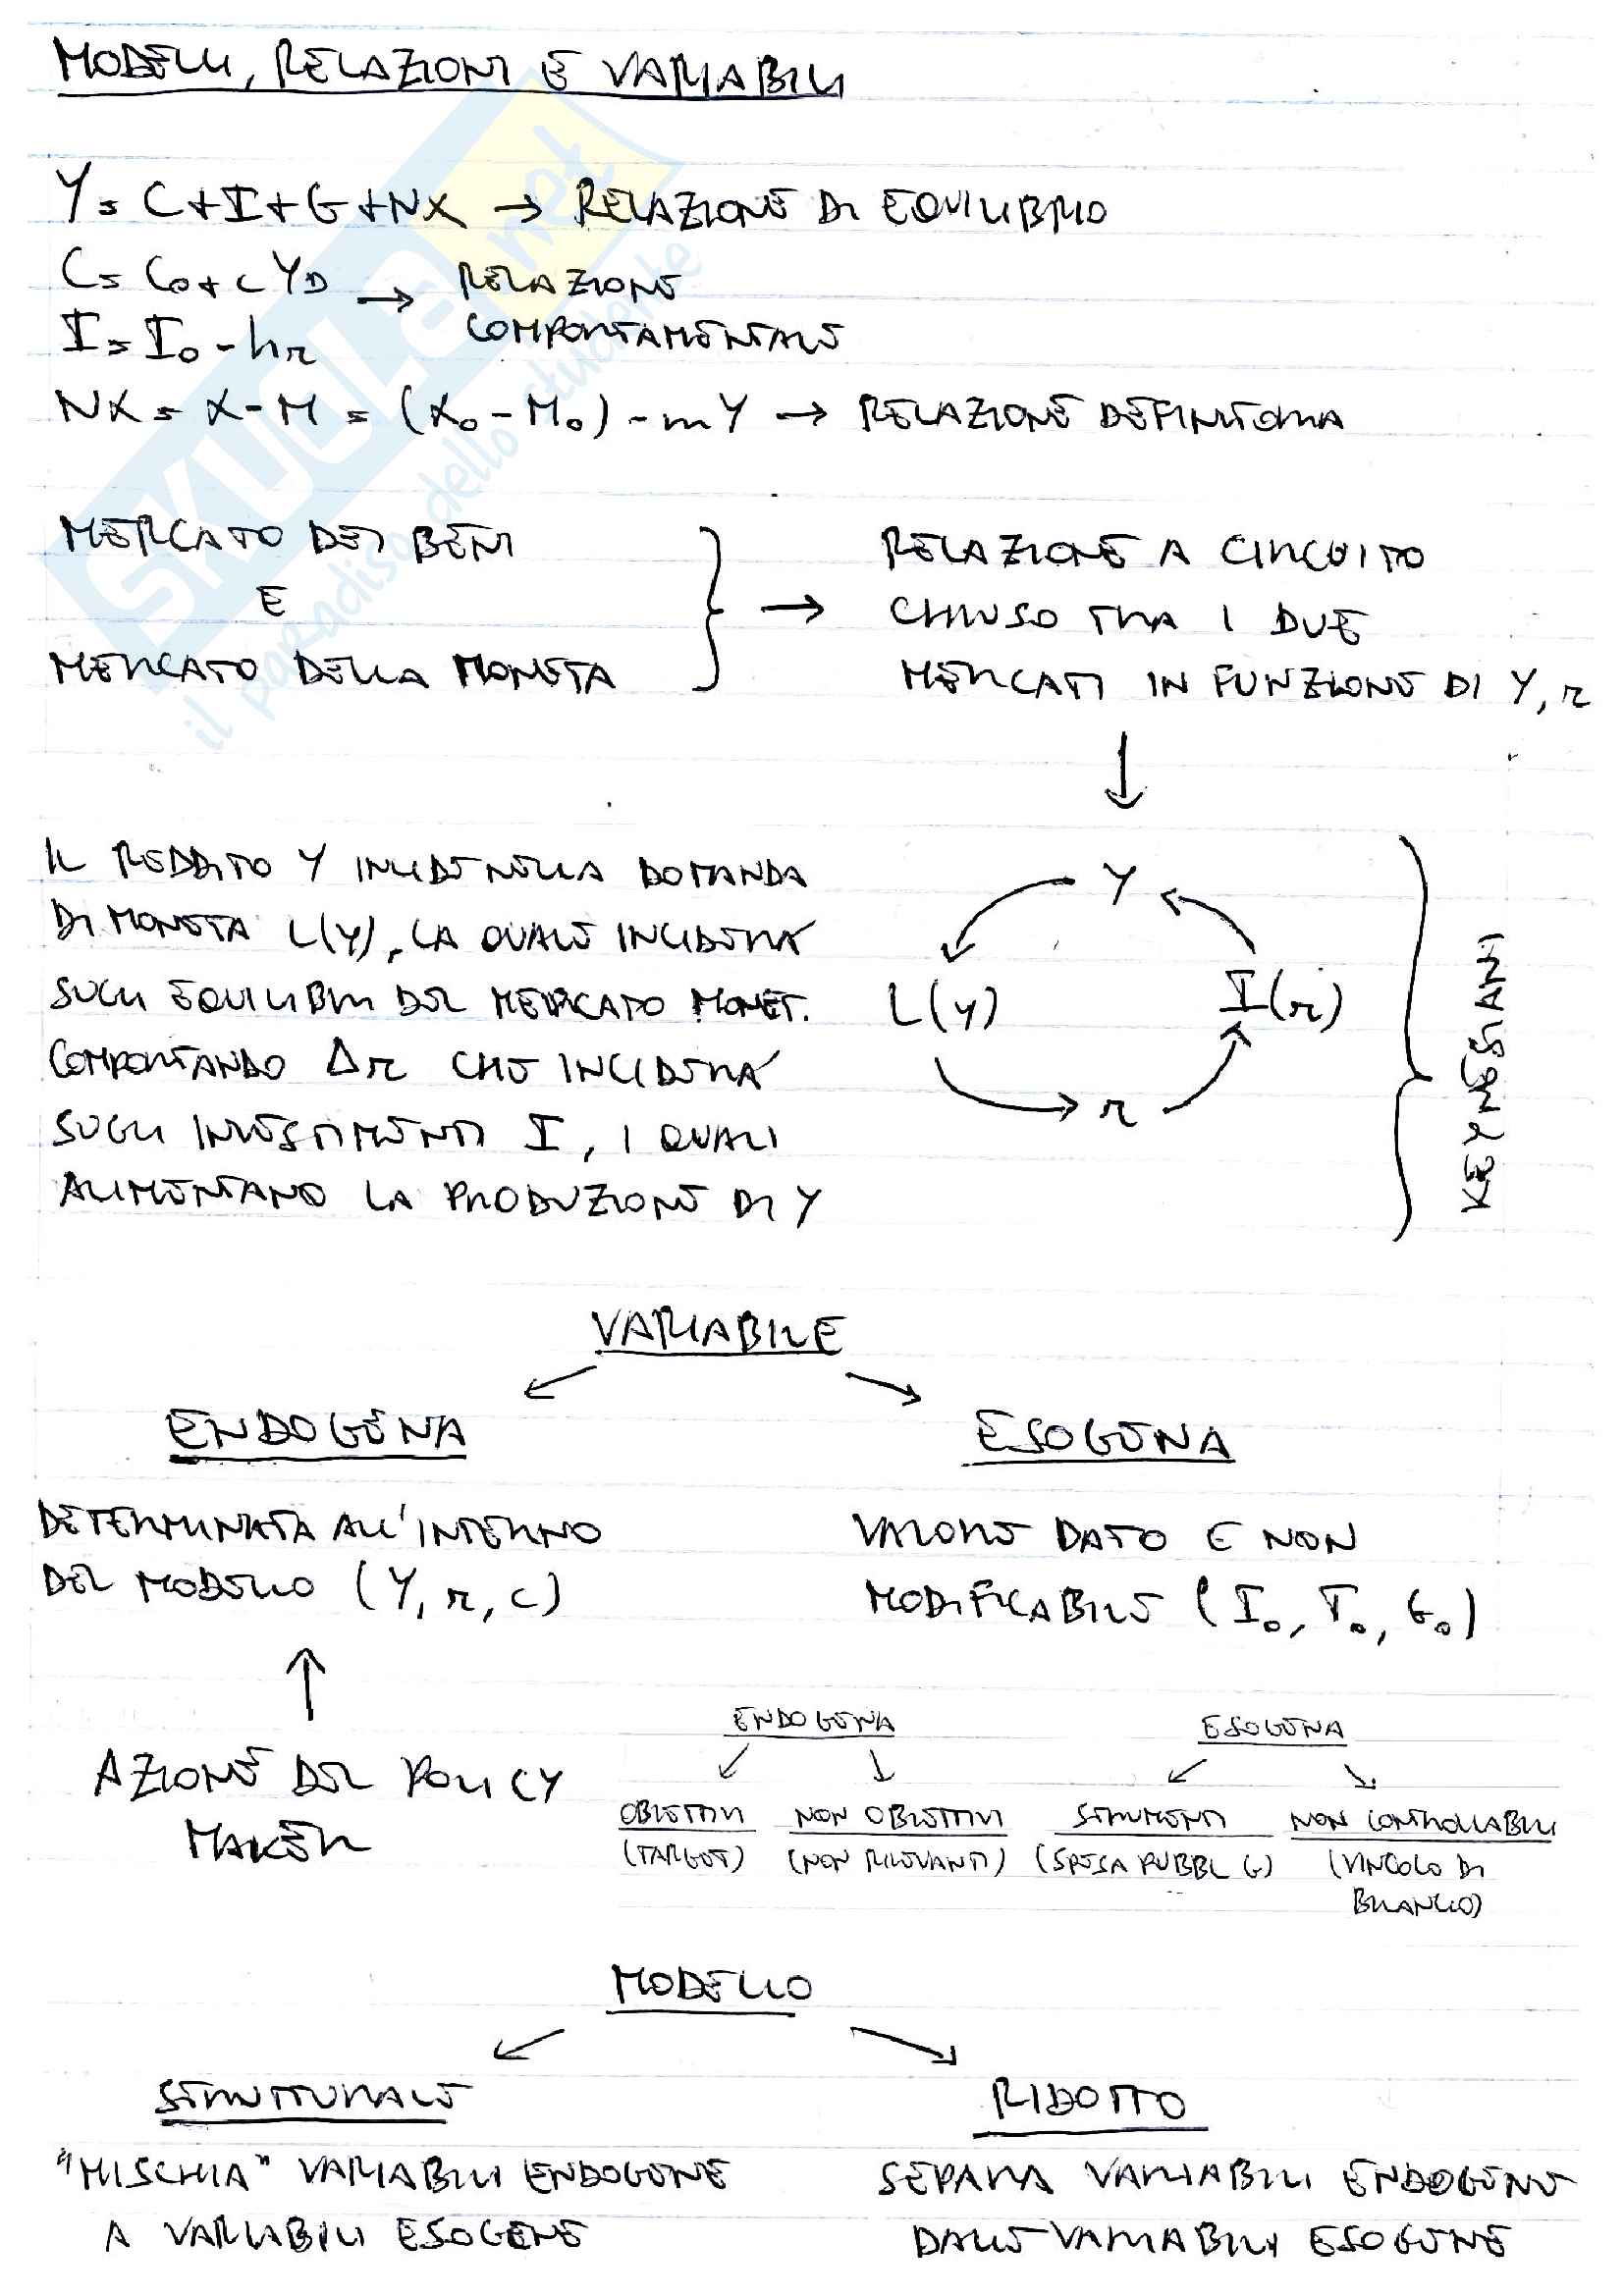 MODELLI, RELAZIONI E VARIABILI
Y = C + I + G + NX → RELAZIONE DI EQUILIBRIO
C = C₀ + cY_D → RELAZIONE
I = I₀ - hr COMPORTAMENTALE
NX = X - M = (X₀ - M₀) - mY → RELAZIONE DEFINITORIA
MERCATO DEI BENI
E
MERCATO DELLA MONETA
→ RELAZIONE A CIRCUITO
CHIUSO TRA I DUE
MERCATI IN FUNZIONE DI Y, r
IL REDDITO Y INCIDE NELLA DOMANDA
DI MONETA L(Y), LA QUALE INCIDERÀ
SUGLI EQUILIBRI DEL MERCATO MONET.
COMPORTANDO Δr CHE INCIDERÀ
SUGLI INVESTIMENTI I, I QUALI
ALIMENTANO LA PRODUZIONE DI Y
Y
L(y) I(r)
r
KEYNESIANI
VARIABILE
ENDOGENA ESOGENA
DETERMINATA ALL'INTERNO
DEL MODELLO (Y, r, C)
VALORE DATO E NON
MODIFICABILE (I₀, T₀, G₀)
AZIONE DEL POLICY
MAKER
ENDOGENA ESOGENA
OBIETTIVI NON OBIETTIVI STRUMENTI NON CONTROLLABILI
(TARGET) (NON RILEVANTI) (SPESA PUBBL G) (VINCOLO DI
BILANCIO)
MODELLO
STRUTTURALE RIDOTTO
"MISCHIA" VARIABILI ENDOGENE
A VARIABILI ESOGENE
SEPARA VARIABILI ENDOGENE
DALLE VARIABILI ESOGENE
SKUOLA.net
il paradiso dello studente